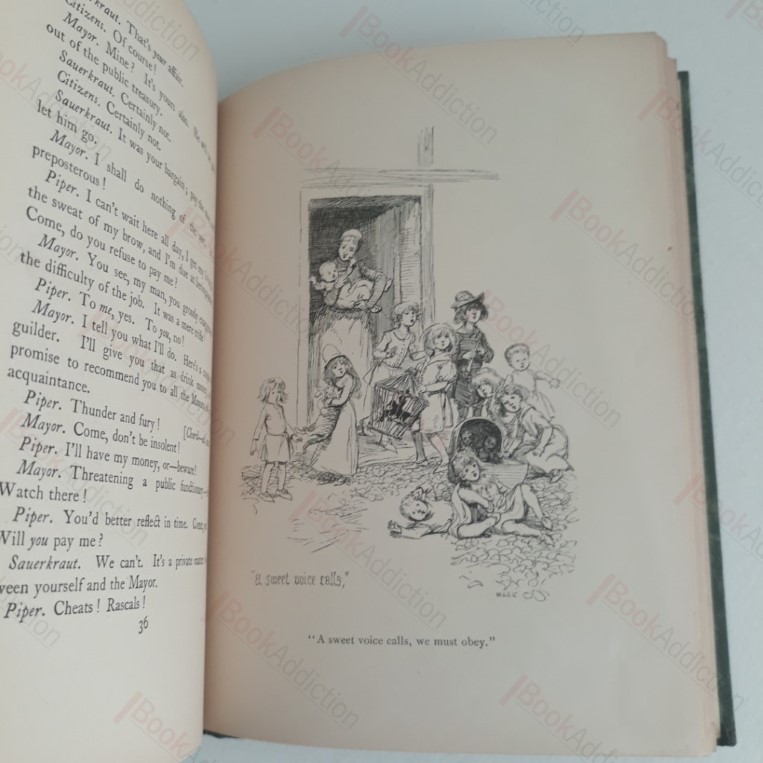 Sauerkraut. That's your affair.
Citizens. Of course!
Mayor. Mine? It's yours
out of the public treasury.
Citizens. Certainly not.
Sauerkraut. Certainly not.
Sauerkraut. It was your bargain; pay the
let him go.
Mayor. I shall do nothing of the
preposterous!
Piper. I can't wait here all day, I
the sweat of my brow, and I'm due at
Come, do you refuse to pay me?
Mayor. You see, my man, you
the difficulty of the job. It was a mere trifle!
Piper. To me, yes. To you, no!
Mayor. I tell you what I'll do. Here's a
guilder. I'll give you that as drink money
promise to recommend you to all the Mayors of
acquaintance.
Piper. Thunder and fury!
Mayor. Come, don't be insolent!
Piper. I'll have my money, or—beware!
Mayor. Threatening a public functionary—
Watch there!
Piper. You'd better reflect in time.
Will you pay me?
Sauerkraut. We can't. It's a private
ween yourself and the Mayor.
Piper. Cheats! Rascals!
36
"A sweet voice calls,"
"A sweet voice calls, we must obey."
BookAddiction